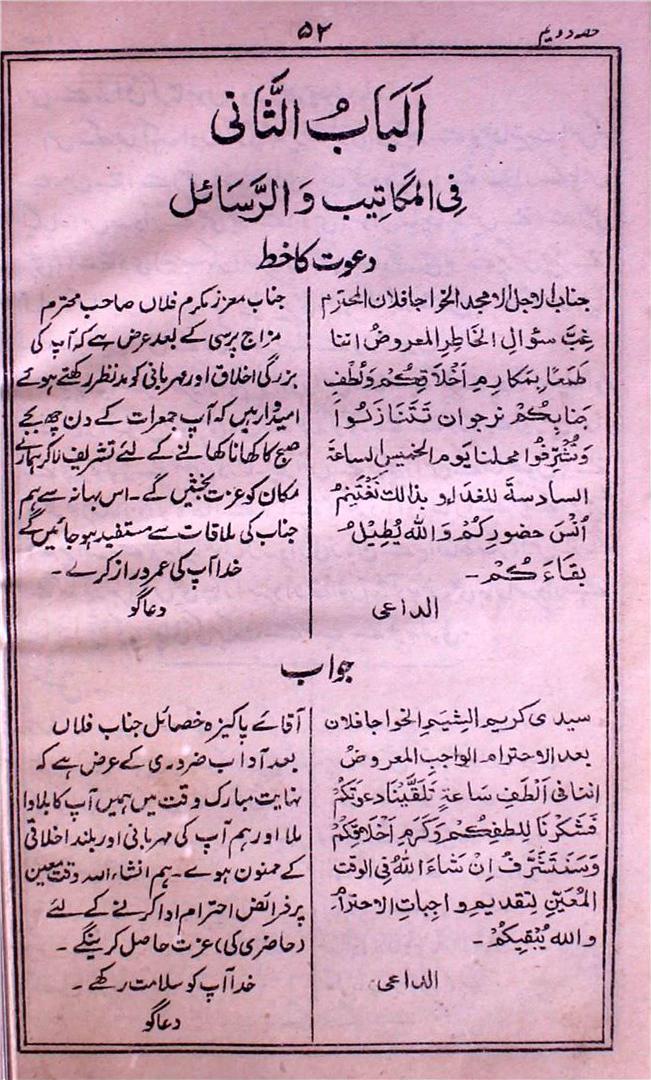 حصہ دویم
۵۲
اَلبَابُ الثَّانی
فِی المَکَاتِیب وَالرَّسَائل
دعوت کا خط
جناب الاجل الامجد الخواجا فلان المحترم
غِبَّ سؤالِ الخَاطِرِ المعروضُ اننا
طمعًا بمکارمِ اَخْلَاقِکُمْ وَلُطْفِ
جنابِکُمْ نرجوان تَتَنَازَلُوْا
وَتُشَرِّفُوا محلنا یوم الخمیس الساعۃ
السادسۃ للغداء و بذالک نَغْتَنِمُ
اُنْسَ حضورِکُمْ وَاللہ یُطِیْلُ
بقاءَکُمْ۔
الداعی
جناب معزز مکرم فلاں صاحب محترم
مزاج پرسی کے بعد عرض ہے کہ آپ کی
بزرگی اخلاق اور مہربانی کو مدنظر رکھتے ہوئے
امیدوار ہیں کہ آپ جمعرات کے دن چھ بجے
صبح کا کھانا کھانے کے لئے تشریف لاکر ہمارے
مکان کو عزت بخشیں گے۔ اس بہانہ سے ہم
جناب کی ملاقات سے مستفید ہوجائیں گے
خدا آپ کی عمر دراز کرے۔
دعاگو
جواب
سیدی کریم الشِیَمِ الخواجا فلان
بعد الاحترام الواجبِ المعروضُ
اننا فی اَلْطَفِ سَاعۃٍ تَلَقَّیْنَا دعوتَکُمْ
فَشَکَرْنَا لِلطفِکُمْ وَکَرَمِ اَخْلَاقِکُمْ
وَسَنَتَشَرَّفُ اِنْ شَاءَ اللہُ فی الوقت
المُعَیَّنِ لِتقدیمِ واجباتِ الاحترامِ
واللہ یُبْقِیکُمْ۔
الداعی
آقائے پاکیزہ خصائل جناب فلاں
بعد آداب ضروری کے عرض ہے کہ
نہایت مبارک وقت میں ہمیں آپ کا بلاوا
ملا اور ہم آپ کی مہربانی اور بلند اخلاقی
کے ممنون ہوے۔ ہم انشاءاللہ وقت معین
پر فرائض احترام ادا کرنے کے لئے
(حاضری کی) عزت حاصل کرینگے۔
خدا آپ کو سلامت رکھے۔
دعاگو